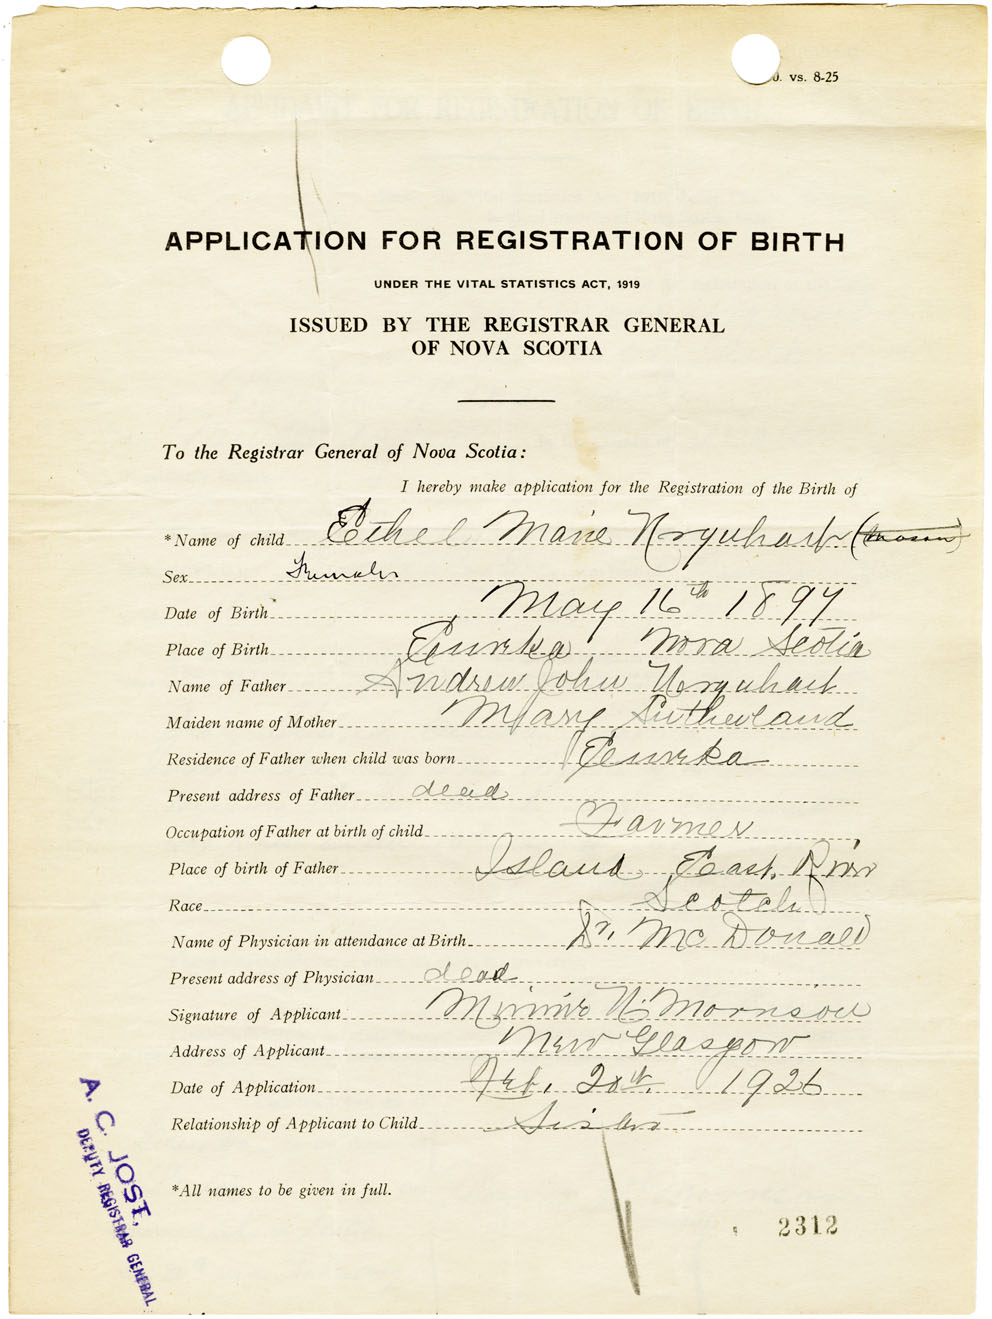 vs. 8-25
APPLICATION FOR REGISTRATION OF BIRTH
UNDER THE VITAL STATISTICS ACT, 1919
ISSUED BY THE REGISTRAR GENERAL
OF NOVA SCOTIA
To the Registrar General of Nova Scotia:
I hereby make application for the Registration of the Birth of
*Name of child Ethel Marie Urquhart
Sex Female
Date of Birth May 16th 1897
Place of Birth Eureka Nova Scotia
Name of Father Andrew John Urquhart
Maiden name of Mother Mary Sutherland
Residence of Father when child was born Eureka
Present address of Father dead
Occupation of Father at birth of child Farmer
Place of birth of Father Island East River
Race Scotch
Name of Physician in attendance at Birth Dr. McDonald
Present address of Physician dead
Signature of Applicant Minnie U. Morrison
Address of Applicant New Glasgow
Date of Application Feb. 20th. 1926
Relationship of Applicant to Child Sister
*All names to be given in full.
A. C. JOST,
DEPUTY REGISTRAR GENERAL
2312